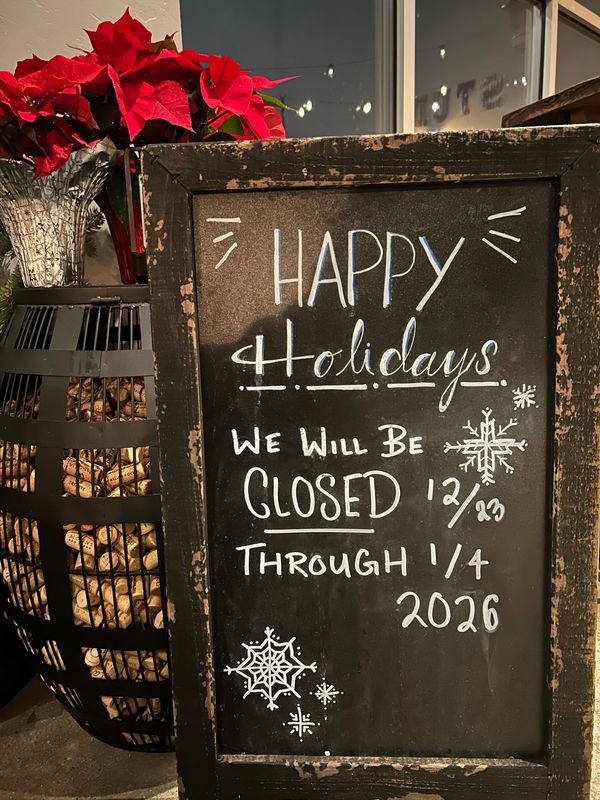 HAPPY
Holidays
WE WILL BE
CLOSED 12/23
THROUGH 1/4
2026